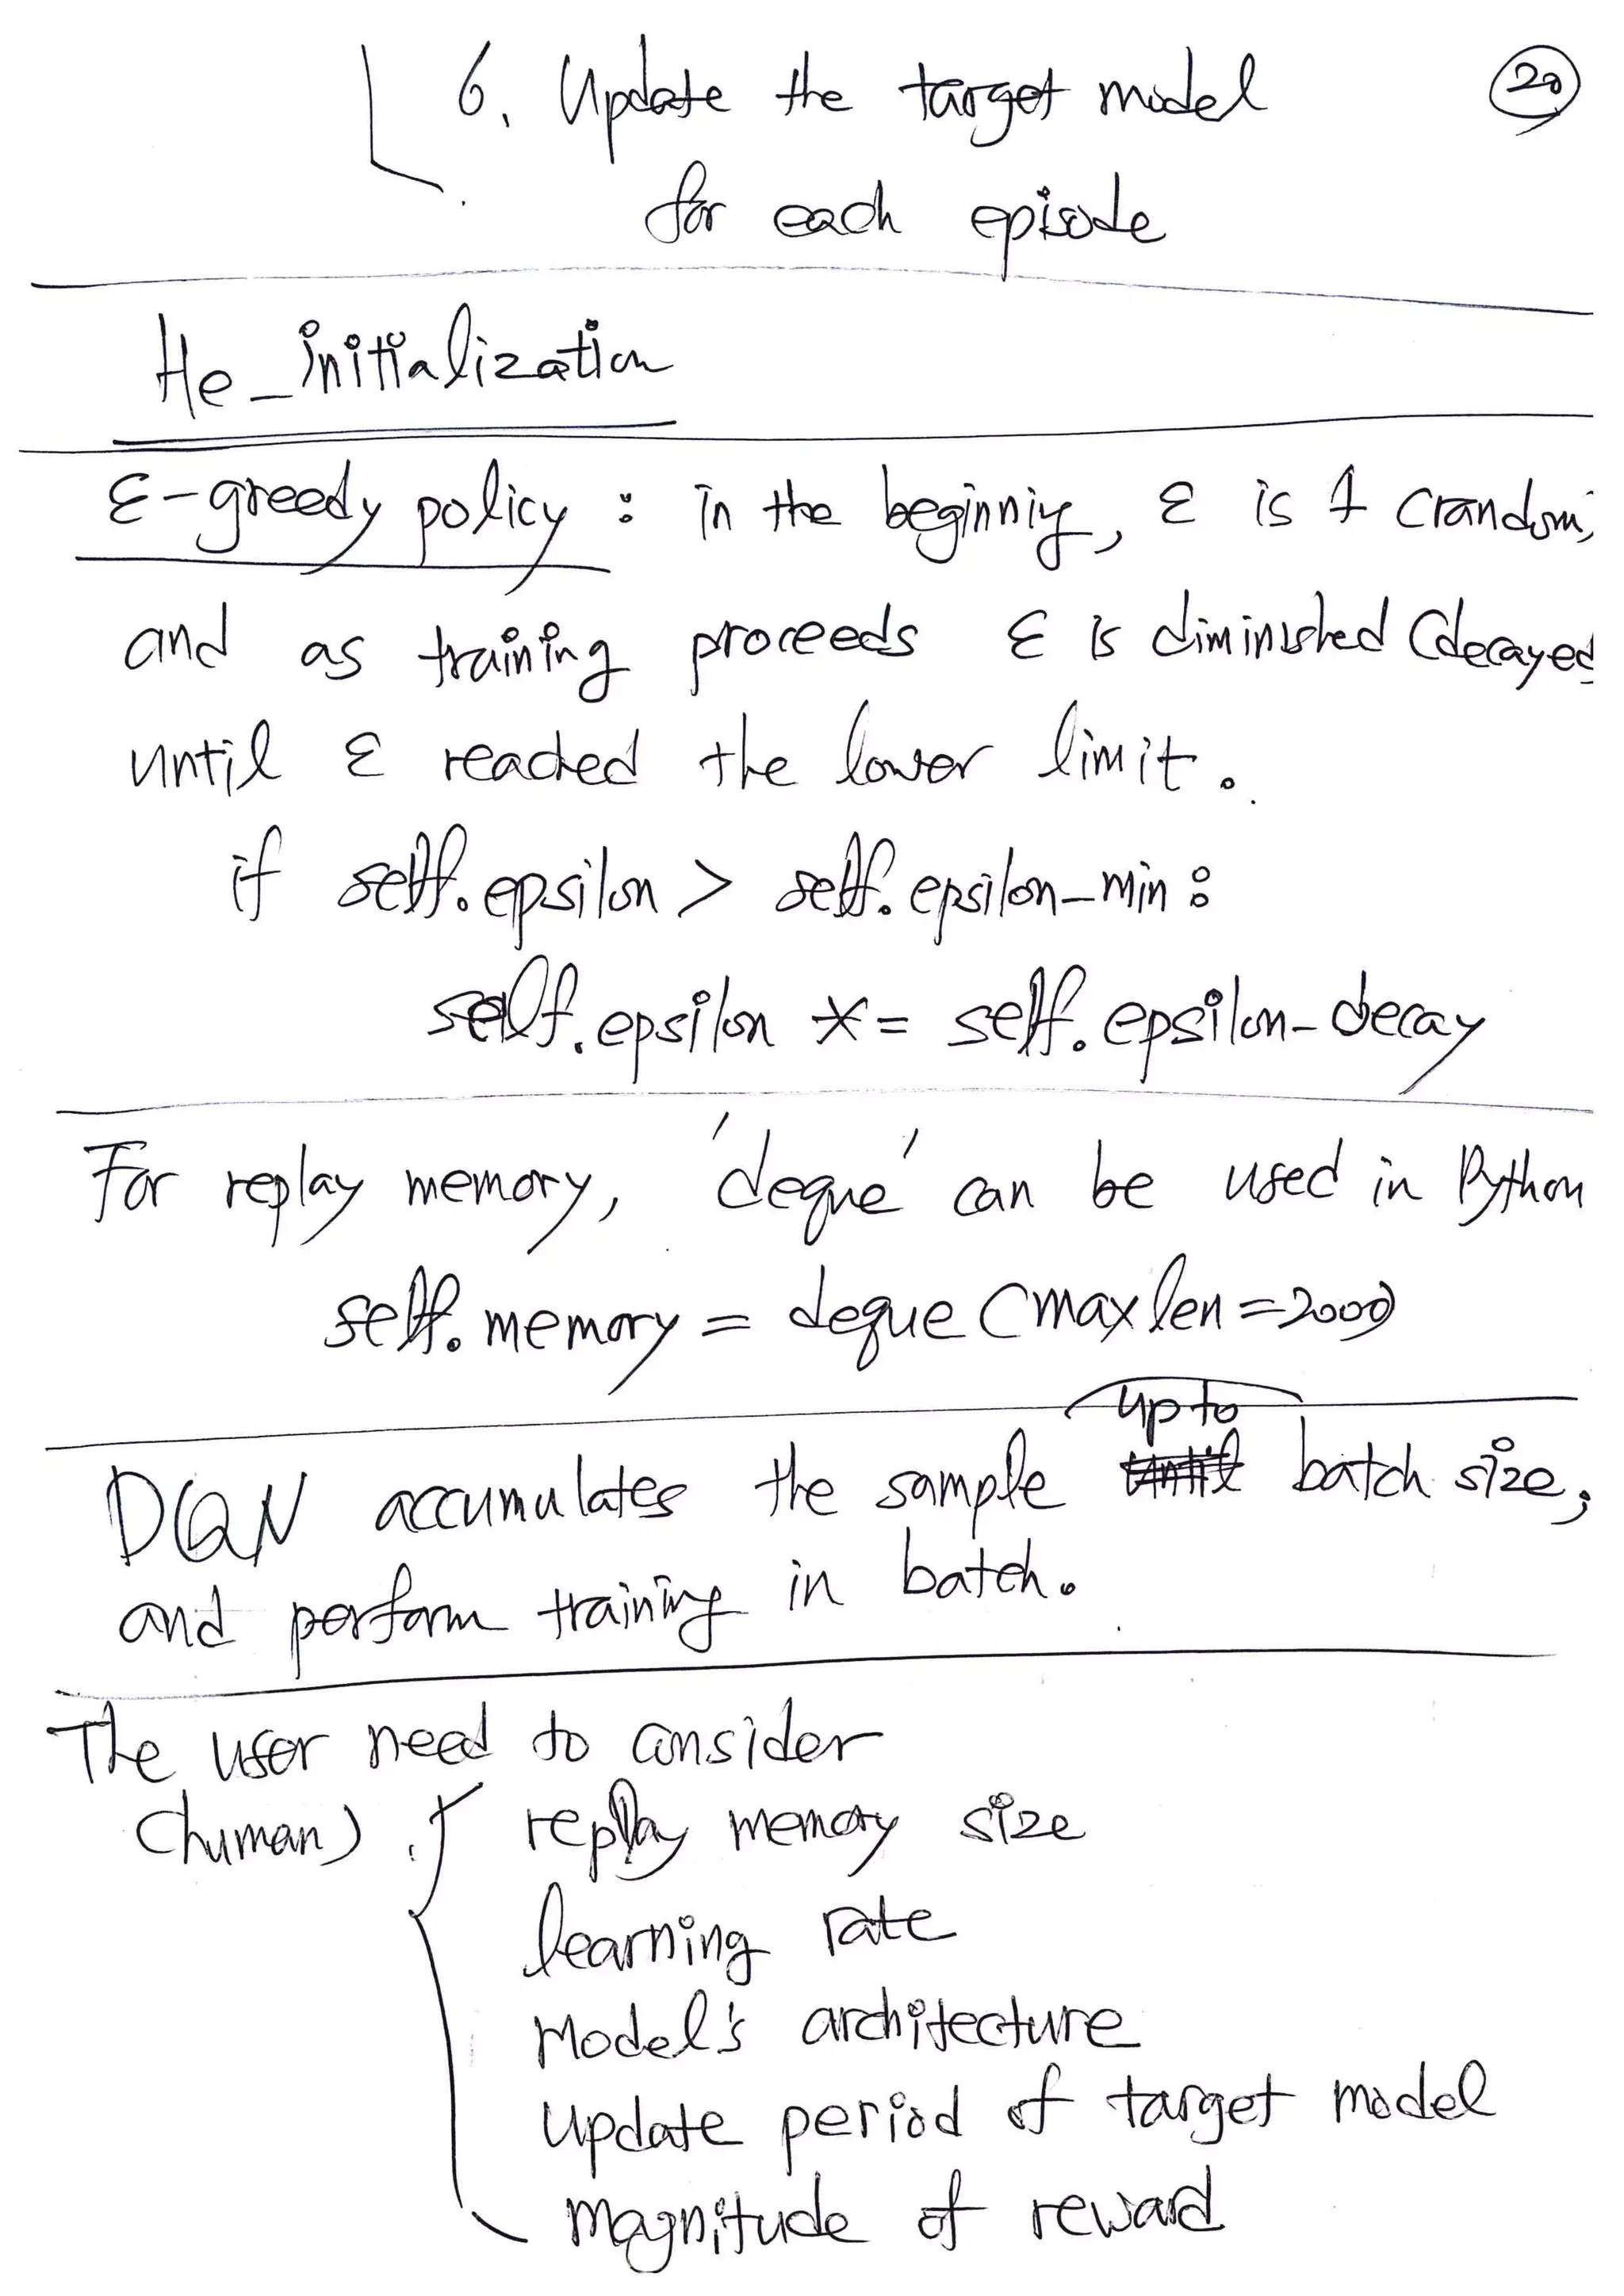 6. Update the target model
20
for each episode
He_initialization
ε-greedy policy : in the beginning, ε is 1 (random)
and as training proceeds ε is diminished (decayed
until ε reached the lower limit.
if self.epsilon > self.epsilon_min :
self.epsilon *= self.epsilon_decay
For replay memory, 'deque' can be used in Python
self.memory = deque (maxlen=2000)
up to
DQN accumulates the sample until batch size,
and perform training in batch.
The user need to consider
(human)
replay memory size
learning rate
Model's architecture
update period of target model
magnitude of reward